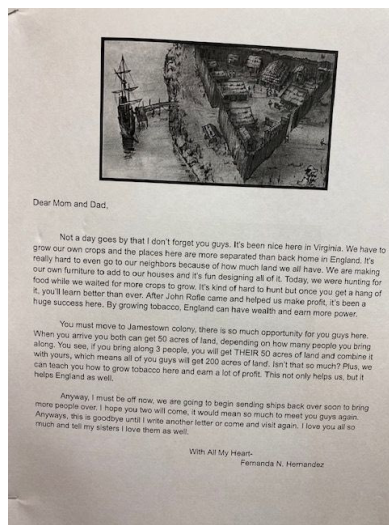 Dear Mom and Dad,
Not a day goes by that I don't forget you guys. It's been nice here in Virginia. We have to
grow our own crops and the places here are more separated than back home in England. It's
really hard to even go to our neighbors because of how much land we all have. We are making
our own furniture to add to our houses and it's fun designing all of it. Today, we were hunting for
food while we waited for more crops to grow. It's kind of hard to hunt but once you get a hang of
it, you'll learn better than ever. After John Rofle came and helped us make profit, it's been a
huge success here. By growing tobacco, England can have wealth and earn more power.
You must move to Jamestown colony, there is so much opportunity for you guys here.
When you arrive you both can get 50 acres of land, depending on how many people you bring
along. You see, if you bring along 3 people, you will get THEIR 50 acres of land and combine it
with yours, which means all of you guys will get 200 acres of land. Isn't that so much? Plus, we
can teach you how to grow tobacco here and earn a lot of profit. This not only helps us, but it
helps England as well.
Anyway, I must be off now, we are going to begin sending ships back over soon to bring
more people over. I hope you two will come, it would mean so much to meet you guys again.
Anyways, this is goodbye until I write another letter or come and visit again. I love you all so
much and tell my sisters I love them as well.
With All My Heart-
Fernanda N. Hernandez